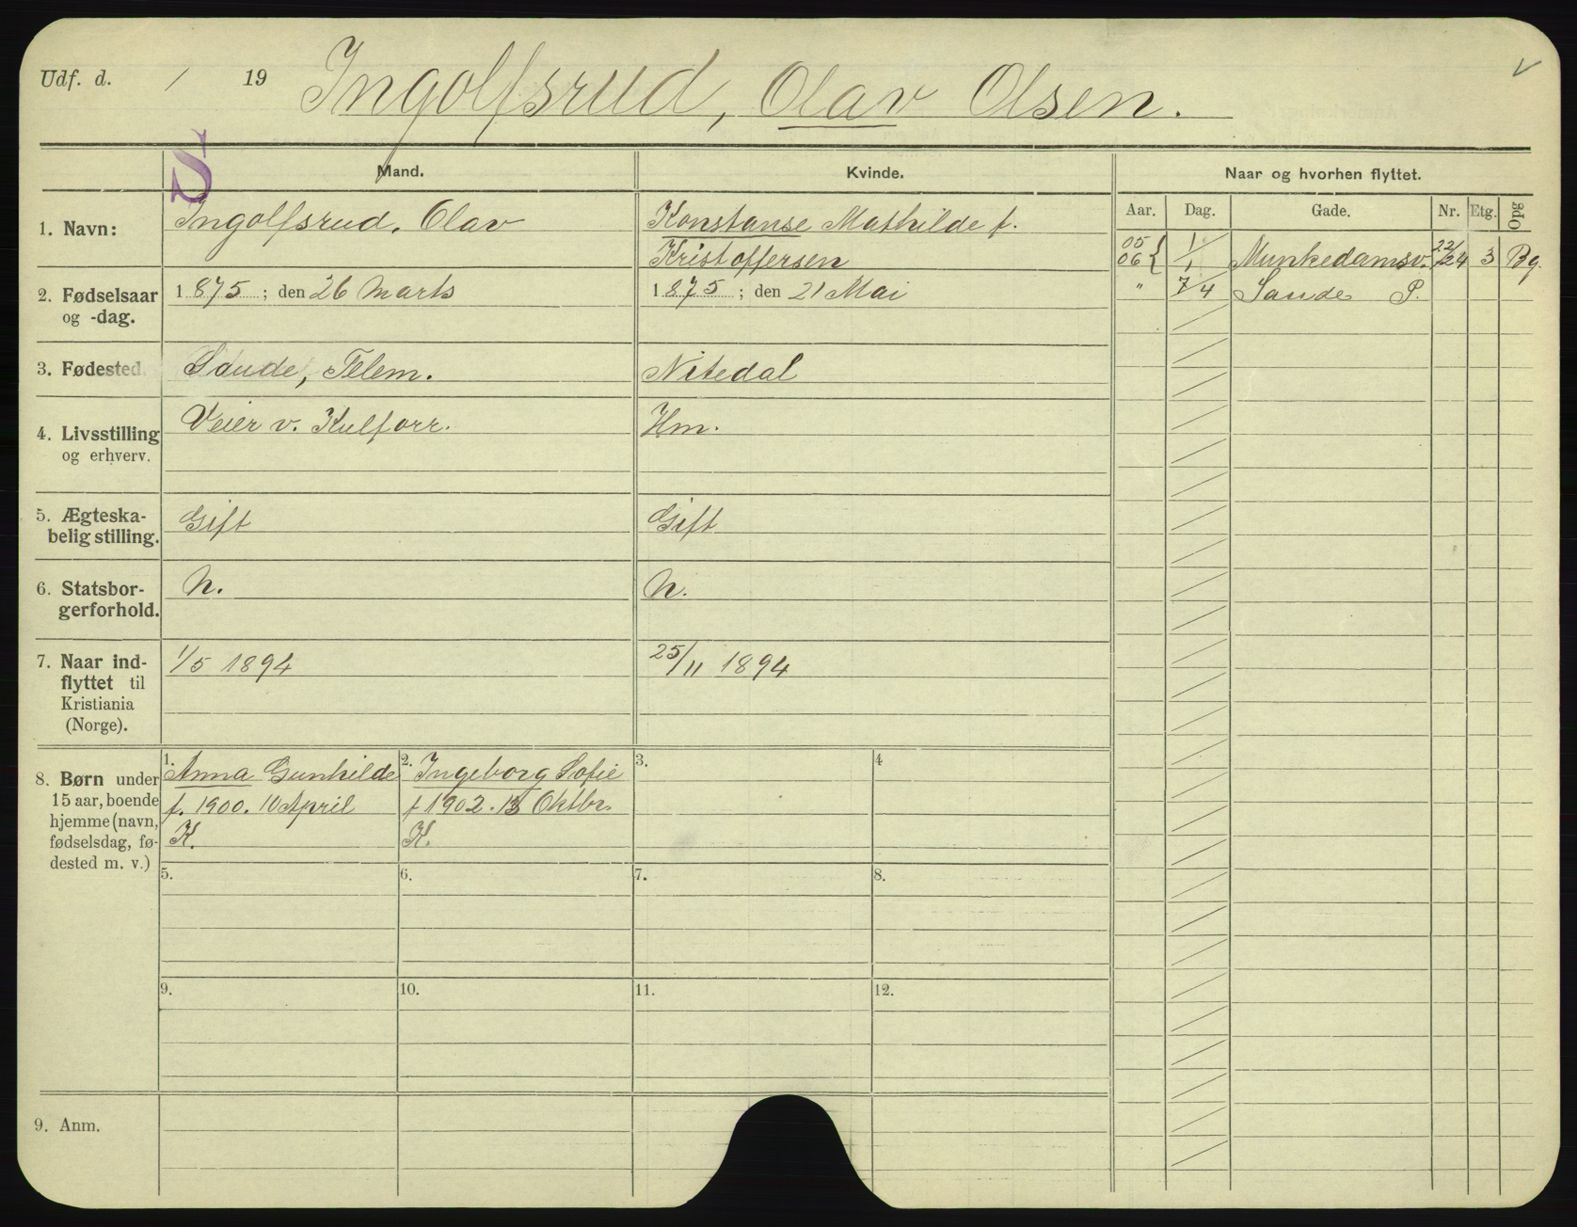 Udf. d. / 19 Ingolfsrud, Olav Olsen. V
S
Mand. Kvinde. Naar og hvorhen flyttet.
Aar. Dag. Gade. Nr. Etg. Opg
1. Navn: Ingolfsrud, Olav Konstanse Mathilde f.
Kristoffersen
05 06 { 1/1 Munkedamsv. 22/24 3 Bg.
2. Fødselsaar og -dag. 1875 ; den 26 Marts 1875 ; den 21 Mai
" 7/4 Saude P.
3. Fødested. Saude, Telem. Nitedal
4. Livsstilling og erhverv. Veier v. Kulforr. Hm.
5. Ægteska-
belig stilling. Gift Gift
6. Statsbor-
gerforhold. N. N.
7. Naar ind-
flyttet til
Kristiania
(Norge). 1/5 1894 25/11 1894
8. Børn under
15 aar, boende
hjemme (navn,
fødselsdag, fø-
dested m. v.)
1. Anna Gunhilde
f. 1900. 10 April
K.
2. Ingeborg Sofie
f 1902. 13 Oktbr.
K.
3. 4
5. 6. 7. 8.
9. 10. 11. 12.
9. Anm.